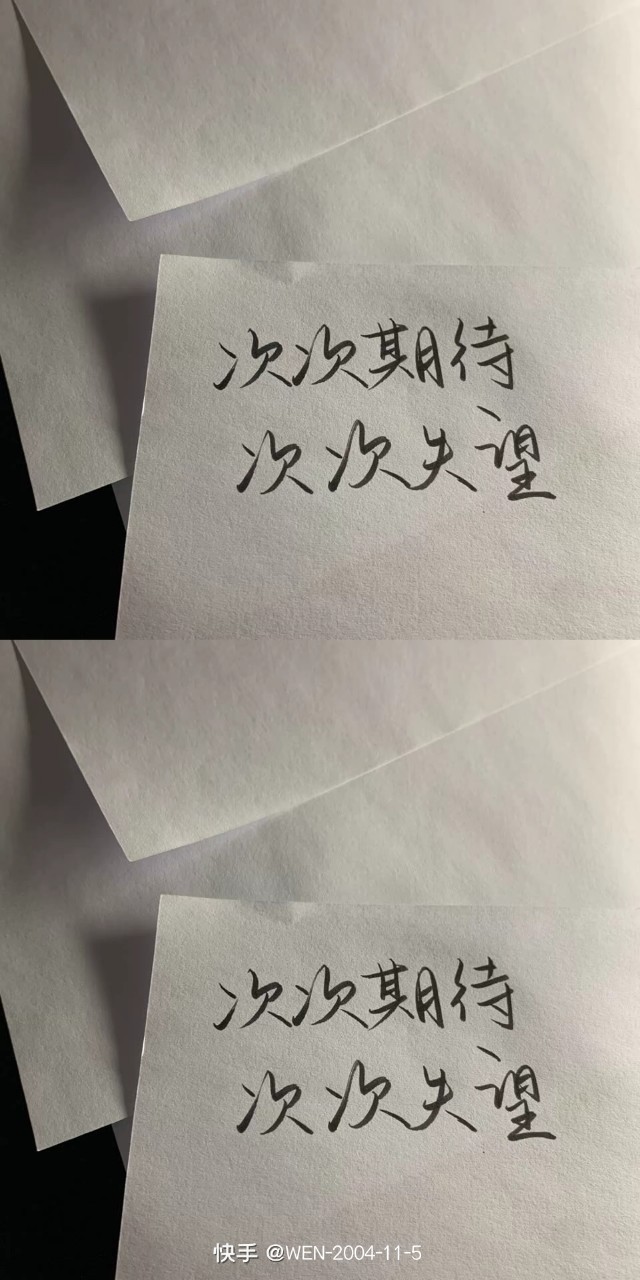 次次期待
次次失望
次次期待
次次失望
快手 @WEN-2004-11-5